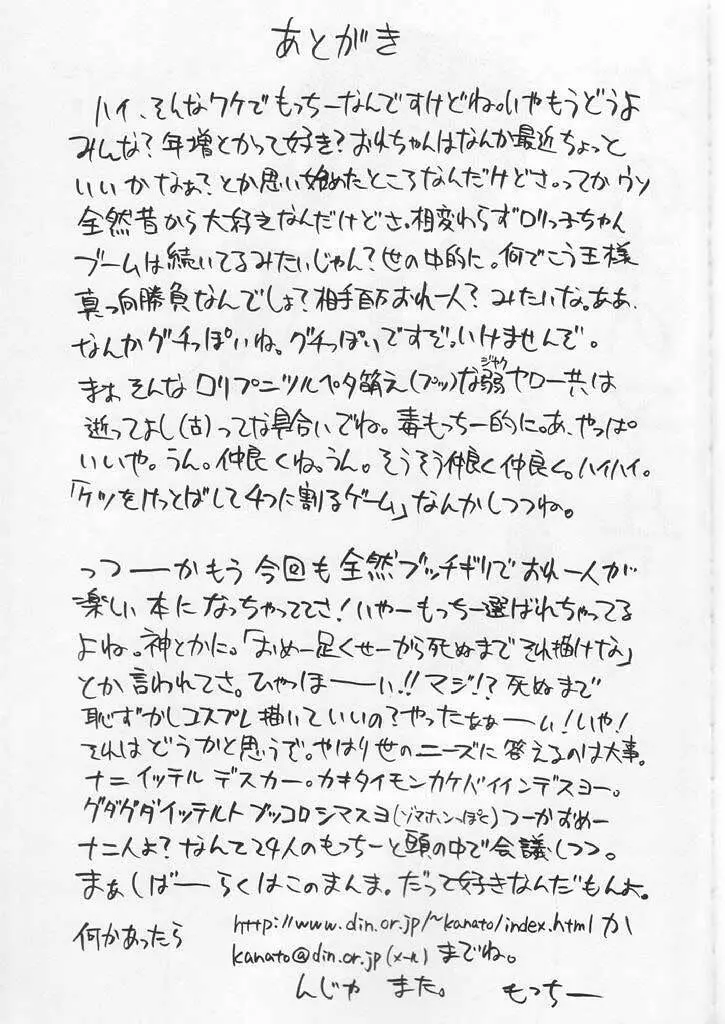 あとがき
ハイ、そんなワケでもっちーなんですけどね。いやもうどうよ
みんな?年増とかって好き?おれちゃんはなんか最近ちょっと
いいかなぁ?とか思い始めたところなんだけどさ。ってかウソ
全然昔から大好きなんだけどさ。相変わらずロリっ子ちゃん
ブームは続いてるみたいじゃん?世の中的に。何でこう王様
真っ向勝負なんでしょ?相手百万おれ一人?みたいな。ああ、
なんかグチっぽいね。グチっぽいですぞ。いけませんぞ。
まぁそんなロリプニツルペタ萌え(プッ)な弱ヤロー共は
ジャク
逝ってよし(古)ってな具合いでね。毒もっちー的に。あ、やっぱ
いいや。うん。仲良くね。うん。そうそう仲良く仲良く。ハイハイ。
「ケツをけっとばして4つに割るゲーム」なんかしつつね。
っつーーかもう今回も全然ブッチギリでおれ一人が
楽しい本になっちゃっててさ!いやーもっちー選ばれちゃってる
よね。神とかに。「おめー足くせーから死ぬまでそれ描けな」
とか言われてさ。ひゃっほーーい!!マジ!?死ぬまで
恥ずかしコスプレ描いていいの?やったなぁーい!いや!
それはどうかと思うで。やはり世のニーズに答えるのは大事。
ナニイッテルデスカー。カキタイモンカケバイインデスヨー。
グダグダイッテルトブッコロシマスヨ(ゾマホンっぽく)つーかおめー
ナニ人よ?なんて24人のもっちーと頭の中で会議しつつ。
まぁしばーらくはこのまんま。だって好きなんだもんよ。
何かあったら http://www.din.or.jp/~kanato/index.html か
kanato@din.or.jp(メール)までね。
んじゃ また。 もっちー